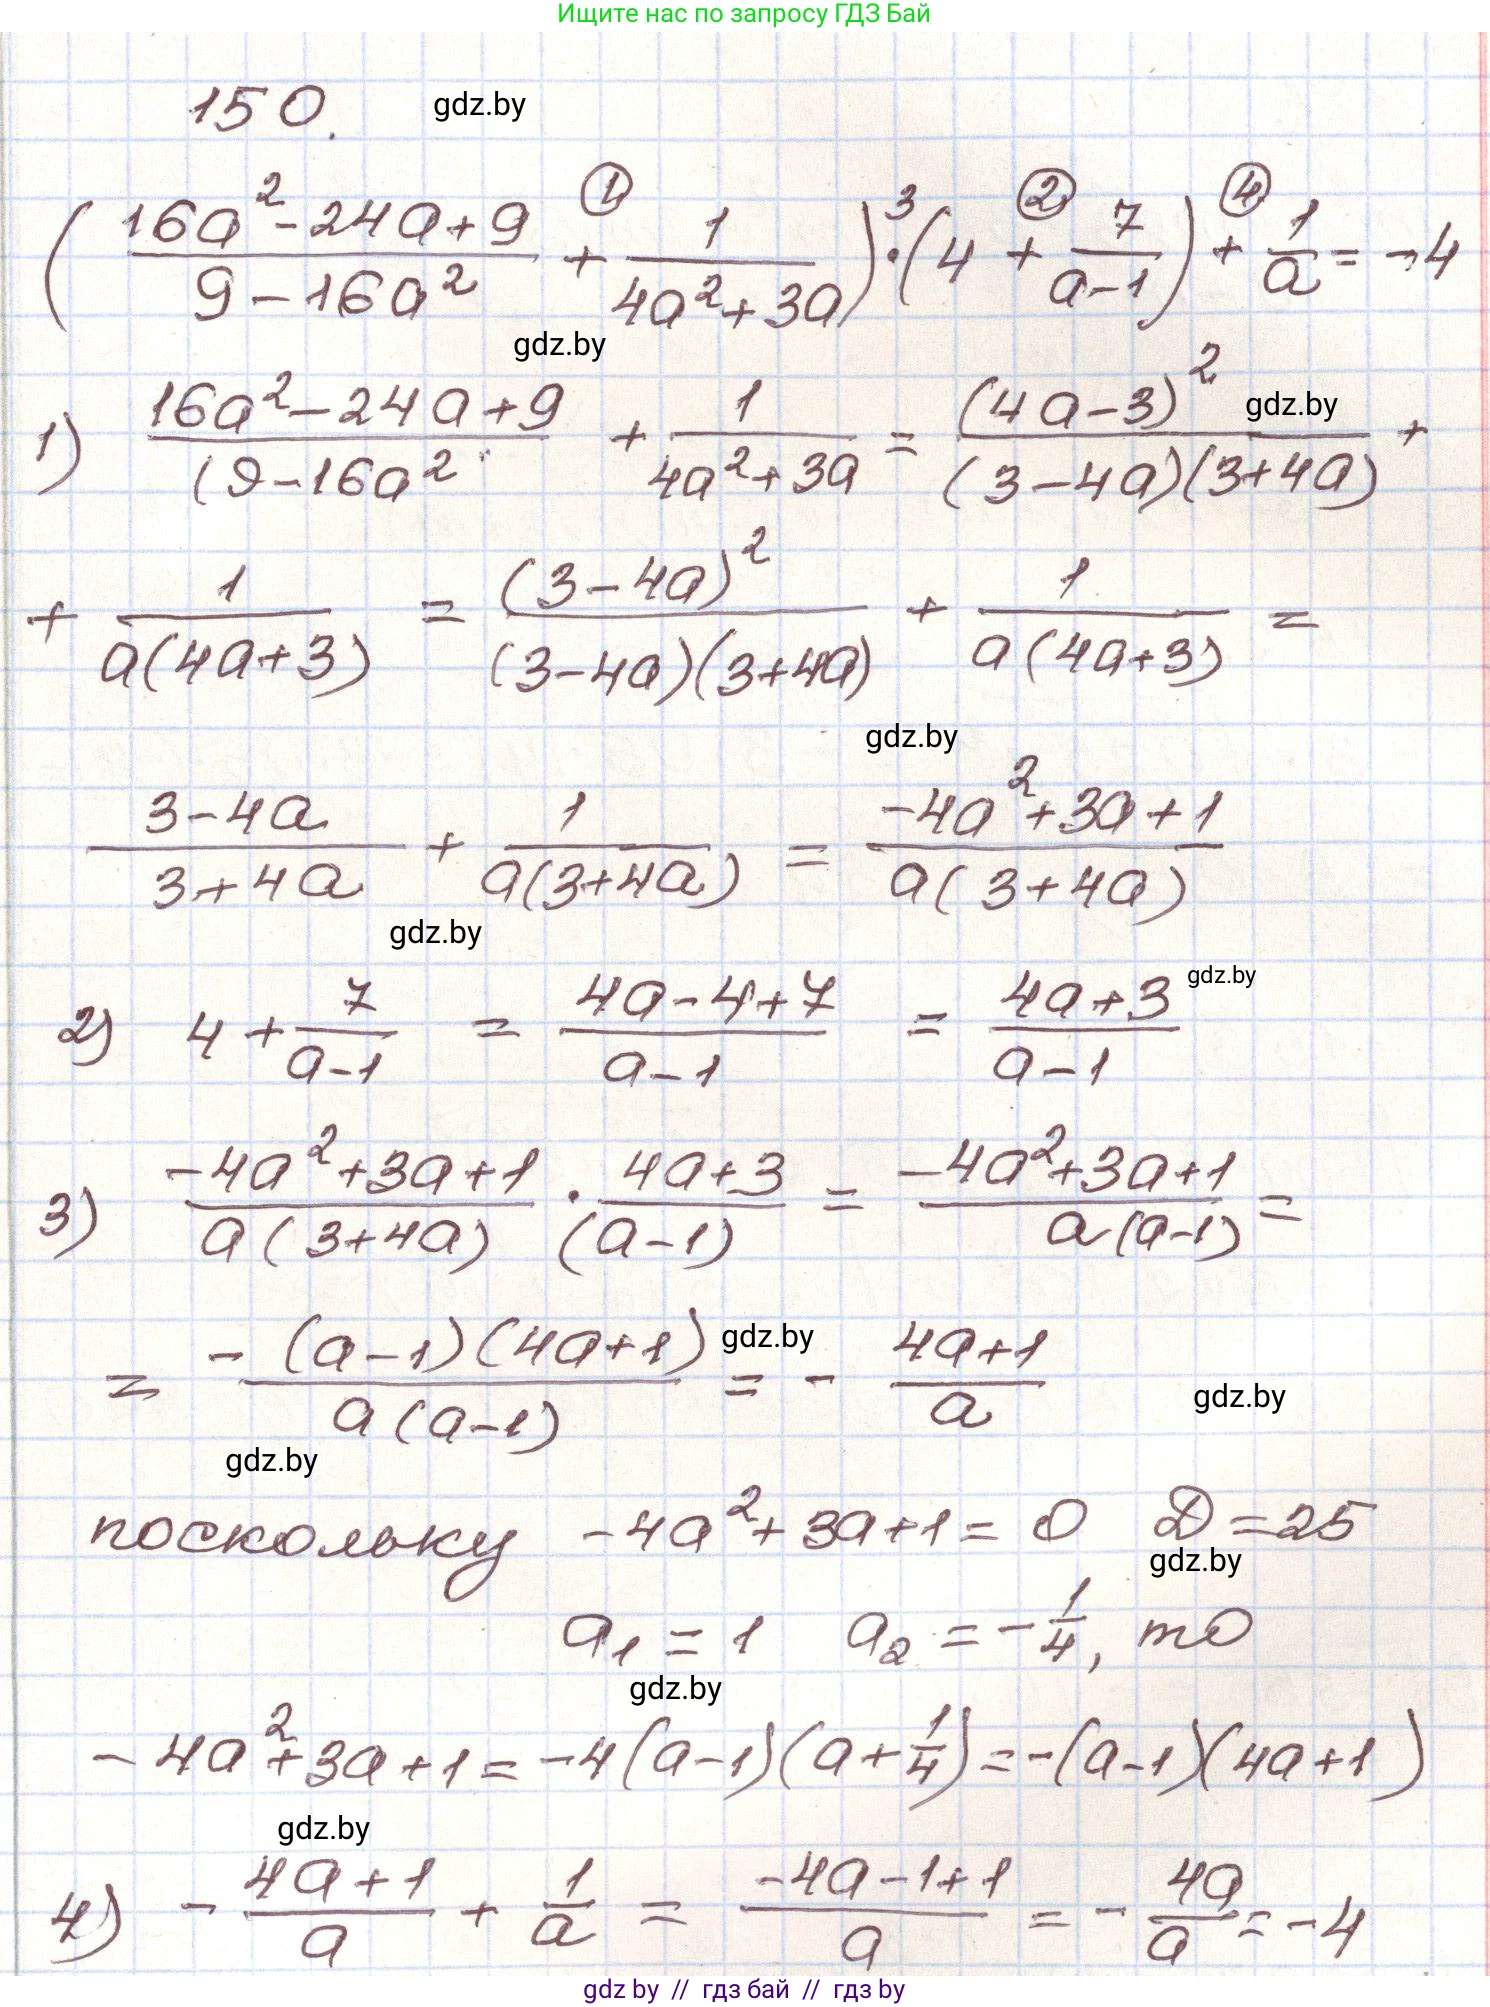 Ищите нас по запросу ГДЗ Бай
150. gdz.by
( (16a² - 24a + 9)/(9 - 16a²) +① 1/(4a² + 3a) ) ·③ (4 +② 7/(a-1)) +④ 1/a = -4
gdz.by
1) (16a² - 24a + 9)/((9 - 16a²) + 1/(4a² + 3a) = (4a-3)²/((3-4a)(3+4a)) + gdz.by
+ 1/(a(4a+3)) = (3-4a)²/((3-4a)(3+4a)) + 1/(a(4a+3)) =
gdz.by
(3-4a)/(3+4a) + 1/(a(3+4a)) = (-4a² + 3a + 1)/(a(3+4a))
gdz.by
2) 4 + 7/(a-1) = (4a-4+7)/(a-1) = (4a+3)/(a-1) gdz.by
3) (-4a² + 3a + 1)/(a(3+4a)) · (4a+3)/((a-1)) = (-4a² + 3a + 1)/(a(a-1)) =
= -(a-1)(4a+1)/(a(a-1)) = - (4a+1)/a gdz.by
gdz.by
gdz.by
поскольку -4a² + 3a + 1 = 0 D = 25
gdz.by
a₁ = 1 a₂ = -1/4, то
gdz.by
-4a² + 3a + 1 = -4(a-1)(a + 1/4) = -(a-1)(4a+1)
gdz.by
4) - (4a+1)/a + 1/a = (-4a-1+1)/a = - 4a/a = -4
gdz by // гдз бай // гдз by